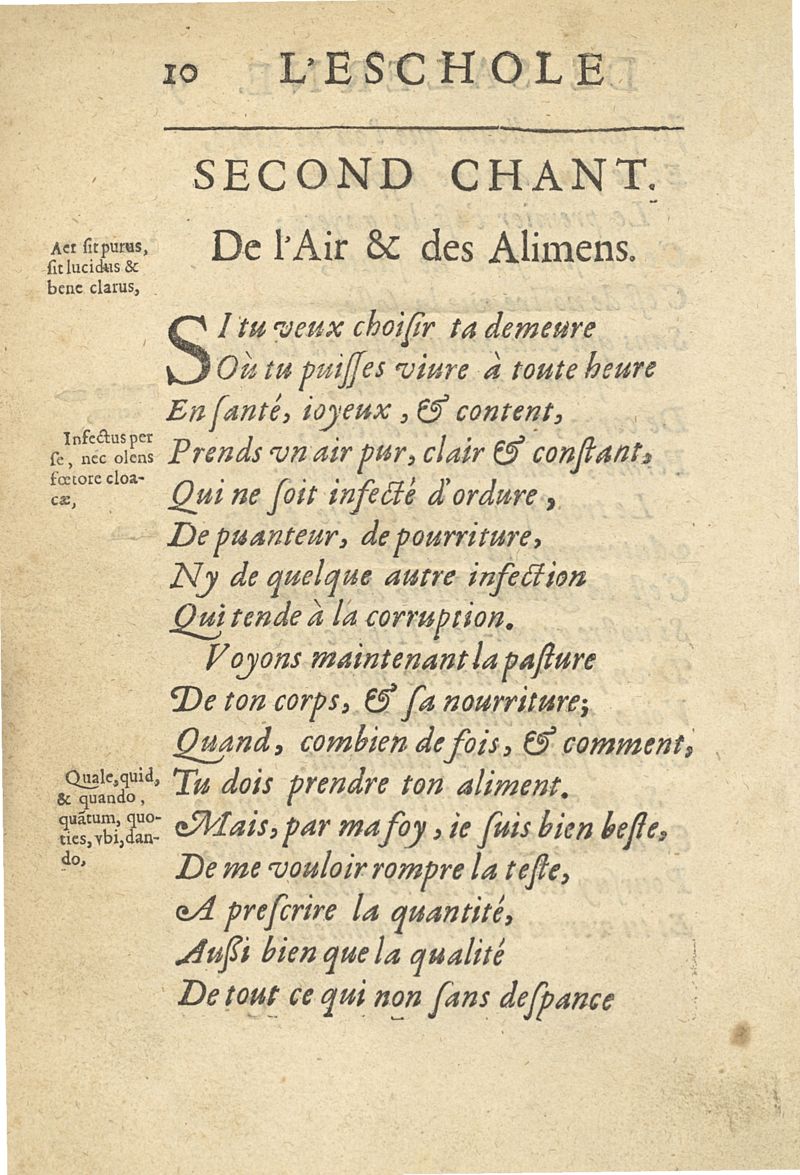 10 L'ESCHOLE
SECOND CHANT.
De l'Air & des Alimens.
Aer ſit purus,
ſit lucidus &
bene clarus,
SI tu veux choiſir ta demeure
Où tu puiſſes viure à toute heure
En ſanté, ioyeux, & content,
Infectus per
ſe, nec olens
fœtore cloa-
cæ,
Prends vn air pur, clair & conſtant,
Qui ne ſoit infecté d'ordure,
De puanteur, de pourriture,
Ny de quelque autre infection
Qui tende à la corruption.
Voyons maintenant la paſture
De ton corps, & ſa nourriture;
Quand, combien de fois, & comment,
Quale, quid,
& quando,
quãtum, quo-
ties, vbi, dan-
do,
Tu dois prendre ton aliment.
Mais, par ma foy, ie ſuis bien beſte,
De me vouloir rompre la teſte,
A preſcrire la quantité,
Außi bien que la qualité
De tout ce qui non ſans deſpance